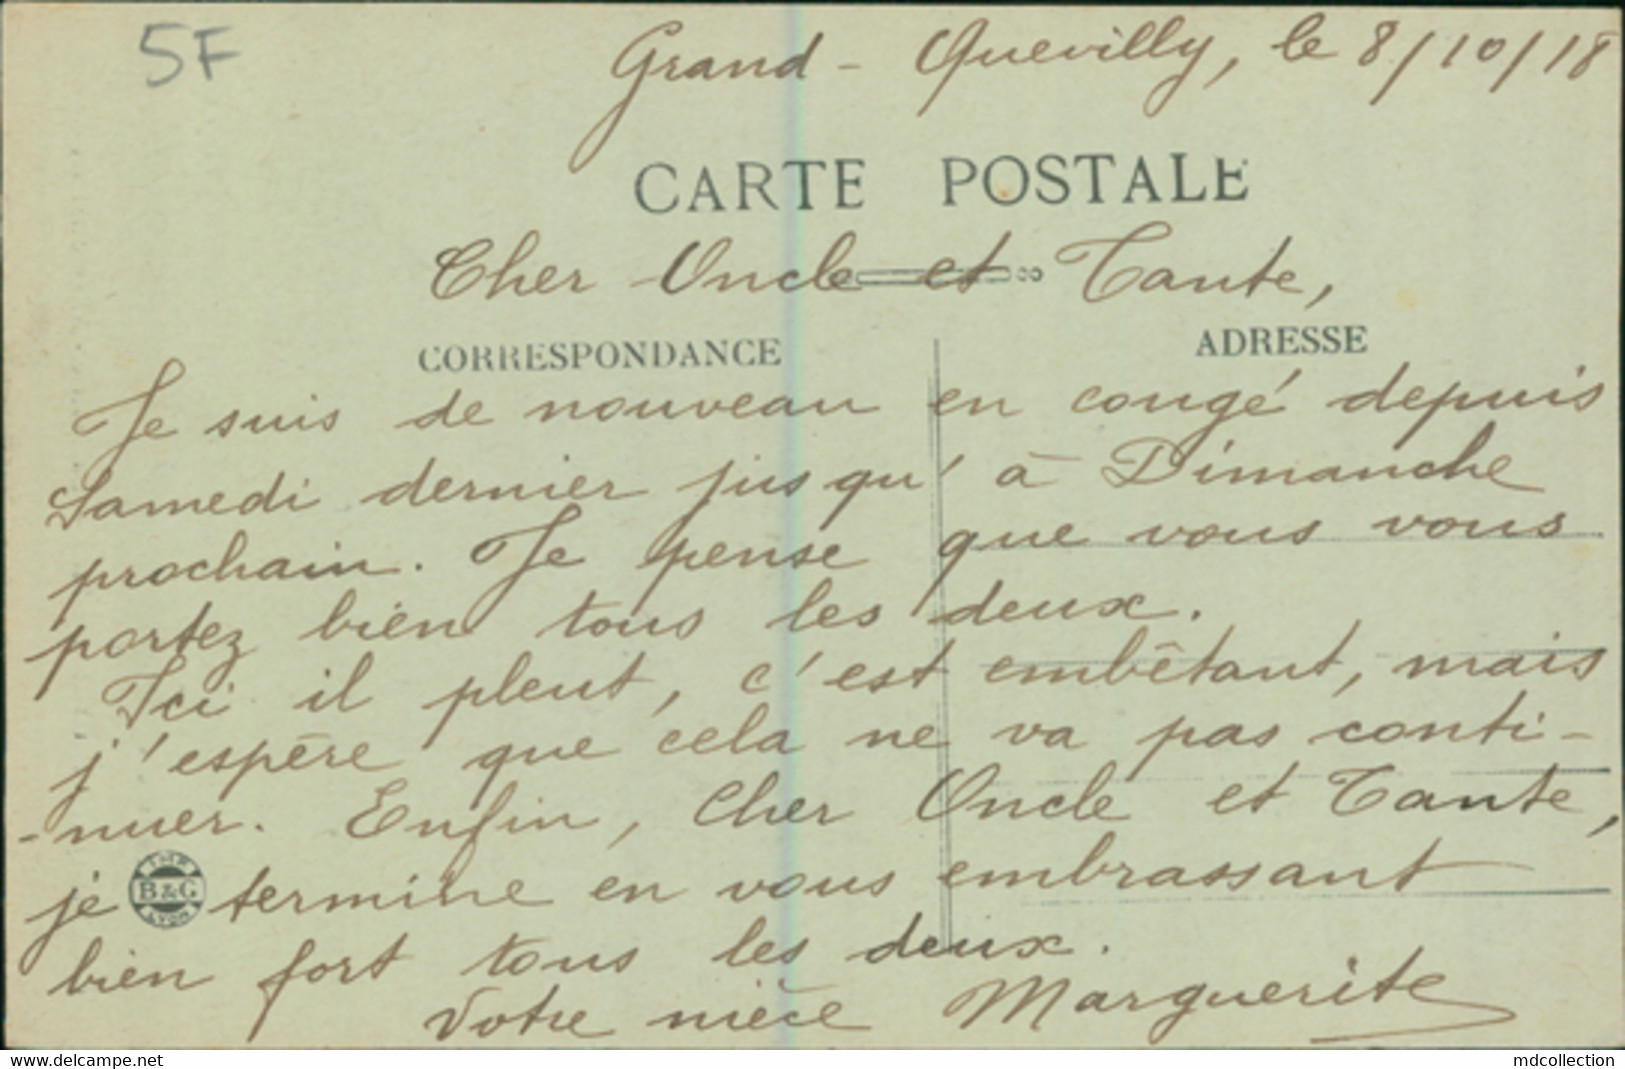 5F
Grand - Quevilly, le 8/10/18
CARTE POSTALE
Cher Oncle et Tante,
CORRESPONDANCE
ADRESSE
Je suis de nouveau en congé depuis
Samedi dernier jusqu'à Dimanche
prochain. Je pense que vous vous
portez bien tous les deux.
Ici il pleut, c'est embêtant, mais
j'espère que cela ne va pas conti-
-nuer. Enfin, Cher Oncle et Tante,
je termine en vous embrassant
IMP. B & G LYON
bien fort tous les deux.
Votre nièce Marguerite
www.delcampe.net
mdcollection